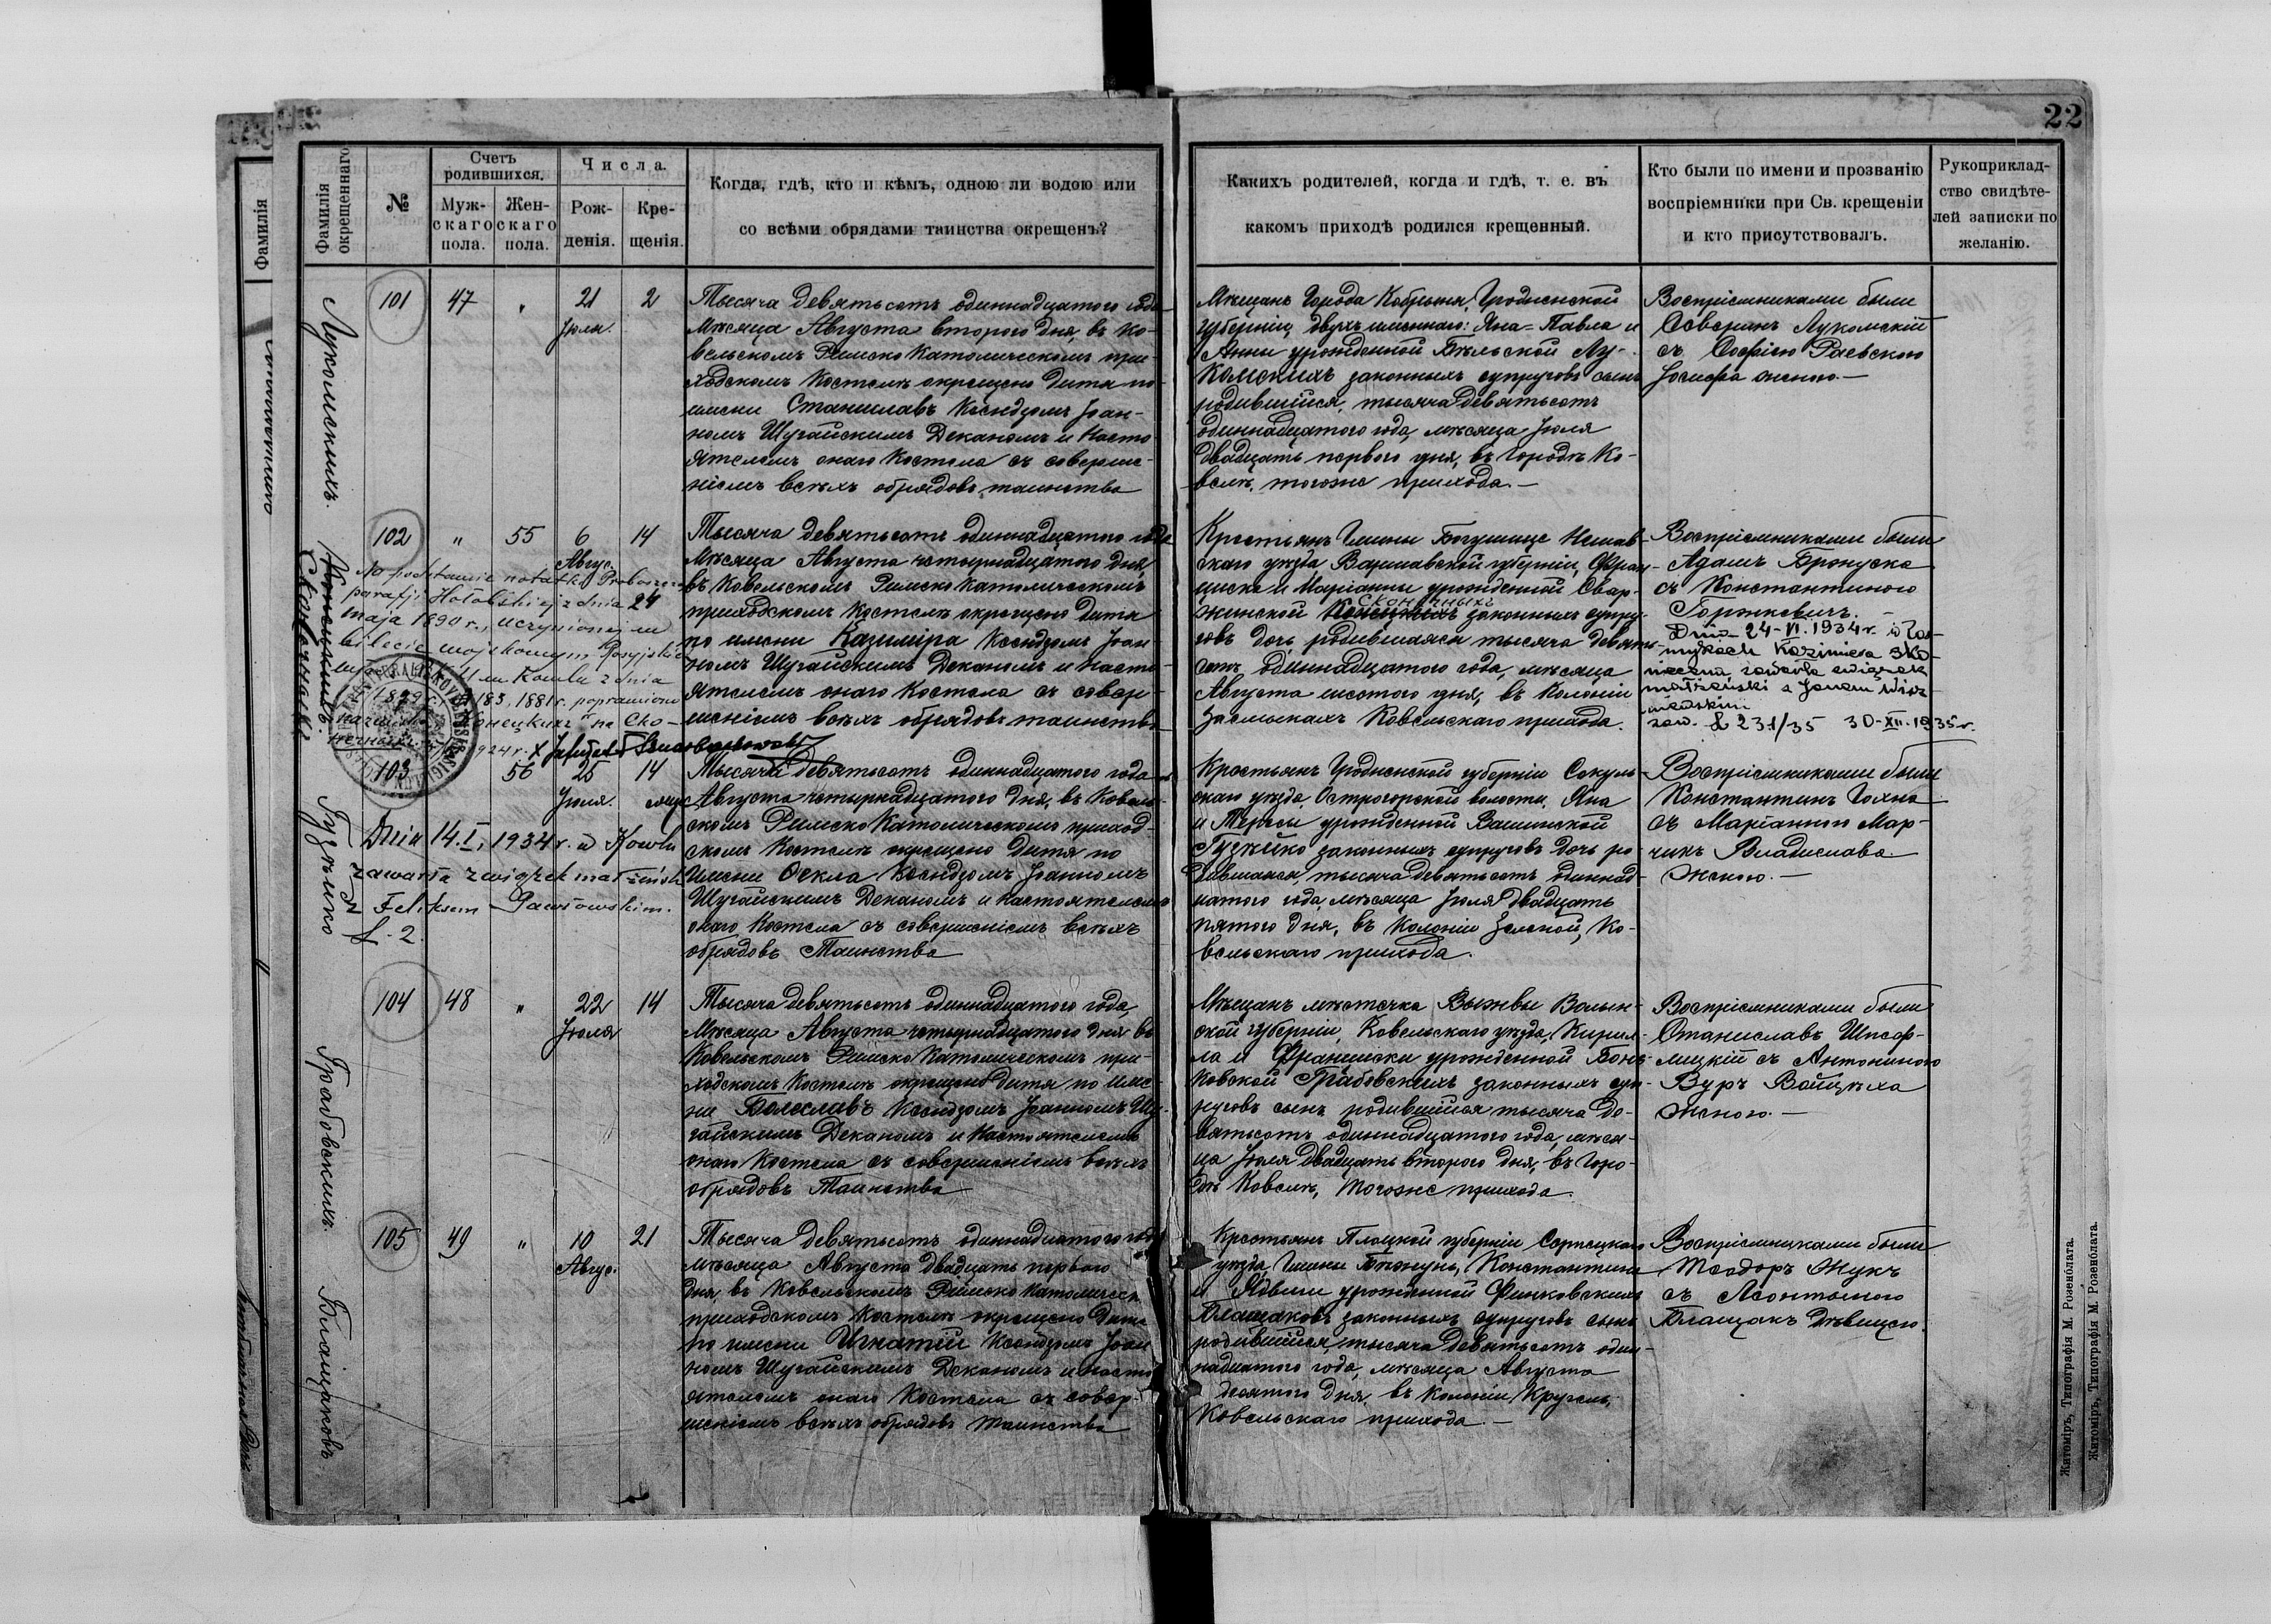 22
Фамилія
Фамилія окрещеннаго
№
Счетъ родившихся.
Муж-скаго пола.
Жен-скаго пола.
Числа.
Рож-денія.
Кре-щенія.
Когда, гдѣ, кто и кѣмъ, одною ли водою или
со всѣми обрядами таинства окрещенъ?
Какихъ родителей, когда и гдѣ, т. е. въ
какомъ приходѣ родился крещенный.
Кто были по имени и прозванію
воспріемники при Св. крещеніи
и кто присутствовалъ.
Рукоприклад-
ство свидѣте-
лей записки по
желанію.
Лукомскихъ.
101
47
"
21
Іюля.
2
Тысяча девятьсотъ одиннадцатого года
Мѣсяца Августа второго дня, въ Ко-
вельскомъ Римско Католическомъ при-
ходскомъ Костелѣ окрещено дитя по
имени Станиславъ Ксендзомъ Іоан-
номъ Шугайскимъ Деканомъ и Насто
ятелемъ онаго Костела съ соверше-
ніемъ всѣхъ обрядовъ таинства
Мѣщанъ Города Кобрыня, Гродненской
губерніи, двухъименнаго: Яна-Павла и
Анны урожденной Бѣльской Лу-
комскихъ законныхъ супруговъ сынъ
родившійся, тысяча девятьсотъ
одиннадцатого года, мѣсяца Іюля
двадцать первого дня, въ Городѣ Ко-
велѣ, тогоже прихода.—
Воспріемниками были
Северинъ Лукомскій
съ Софією Раевскою
Іосифа женою.—
102
"
55
6
Авгус.
14
Тысяча девятьсотъ одиннадцатого года
Мѣсяца Августа четырнадцатого дня,
въ Ковельскомъ Римско Католическомъ
приходскомъ Костелѣ окрещено дитя
по имени Казимира Ксендзомъ Іоан
номъ Шугайскимъ Деканомъ и насто
ятелемъ онаго Костела съ совер-
шеніемъ всѣхъ обрядовъ таинства
Крестьянъ Гмины Богушице Нешав-
скаго уѣзда, Варшавской губерніи, Фран-
циска и Маріанны урожденной Скар-
жинской
законныхъ супру-
говъ дочь, родившаяся тысяча девять-
сотъ одиннадцатого года, мѣсяца
Августа шестого дня, въ Колоніи
Засмыкахъ Ковельскаго прихода.
Воспріемниками были
Адамъ Бронуска
съ Константиною
Горжкевичъ.—
Dnia 24-VI.1934 r. w Zas-
mykach Kazimiera Sko-
nieczna zawarła związek
małżeński z Janem Wiś-
niewskim
zaw. L 231/35 30-XII.1935 r.
Na podstawie notatki Proboszcza
parafji Hołobskiej z dnia 24
maja 1890 r., uczynionej na
bilecie wojskowym Rosyjskim
w Kowlu z dnia
1881 r. poprawiono
nazwisko Конецкихъ на Ско-
нечныхъ
Гузѣйко
103
56
25
Іюля.
14
Тысяча девятьсотъ одиннадцатого года
Августа четырнадцатого дня, въ Ковель-
скомъ Римско Католическомъ приход-
скомъ Костелѣ окрещено дитя по
имени Ѳекла Ксендзомъ Іоанномъ
Шугайскимъ Деканомъ и настоятелемъ
онаго Костела съ совершеніемъ всѣхъ
обрядовъ Таинства
Крестьянъ Гродненской губерніи Соколь-
скаго уѣзда, Острогорской волости, Яна
и Терезы урожденной Вашинской
Гузѣйко законныхъ супруговъ дочь ро-
дившаяся, тысяча девятьсотъ одиннад-
цатого года, мѣсяца Іюля двадцать
пятого дня, въ Колоніи Зеленой, Ко-
вельскаго прихода.
Воспріемниками были
Константинъ Гохна
съ Маріанною Мар-
чикъ Владислава
женою.—
Dnia 14.I.1934 r. w Kowlu
zawarła związek małżeński
z Feliksem Pawłowskim.
L. 2.
Грабовскихъ.
104
48
"
22
Іюля
14
Тысяча девятьсотъ одиннадцатого года,
Мѣсяца Августа четырнадцатого дня въ
Ковельскомъ Римско Католическомъ при-
ходскомъ Костелѣ окрещено дитя по име-
ни Болеславъ Ксендзомъ Іоанномъ Шу-
гайскимъ Деканомъ и Настоятелемъ
онаго Костела съ совершеніемъ всѣхъ
обрядовъ Таинства
Мѣщанъ мѣстечка Выжвы Волын-
ской губерніи, Ковельскаго уѣзда, Кирил-
ла и Франциски урожденной Бонь-
ковской Грабовскихъ законныхъ суп-
руговъ сынъ родившійся тысяча де-
вятьсотъ одиннадцатого года, мѣся-
ца Іюля двадцать второго дня, въ Горо-
дѣ Ковелѣ, тогоже прихода.
Воспріемниками были
Станиславъ
съ Антониною
Вуръ Войцѣха
женою.—
Блащаковъ
105
49
"
10
Авгус.
21
Тысяча девятьсотъ одиннадцатого года
мѣсяца Августа двадцать первого
дня въ Ковельскомъ Римско Католическ
приходскомъ Костелѣ окрещено дитя
по имени Игнатій Ксендзомъ Іоан
номъ Шугайскимъ Деканомъ и насто
ятелемъ онаго Костела съ совер-
шеніемъ всѣхъ обрядовъ Таинства
Крестьянъ Плоцкой губерніи Серпецкаго
уѣзда, Гмины Бѣжунь, Константина
и Ядвиги урожденной Финковскихъ
Блащаковъ законныхъ супруговъ сынъ
родившійся, тысяча девятьсотъ один-
надцатого года, мѣсяца Августа
десятого дня, въ Колоніи Кругель,
Ковельскаго прихода.—
Воспріемниками были
Теодоръ Жукъ
съ Леонтыною
Блащакъ дѣвицею.
Житоміръ, Типографія М. Розенблата.
Житоміръ, Типографія М. Розенблата.